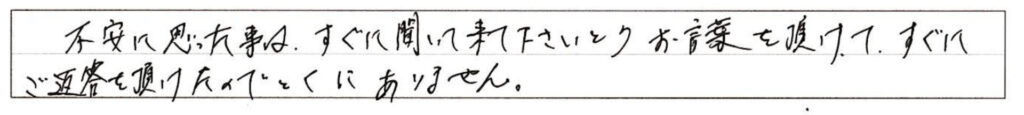 不安に思った事は、すぐに聞いて来て下さいとのお言葉を頂けて、すぐに
ご返答を頂けたのでとくにありません。